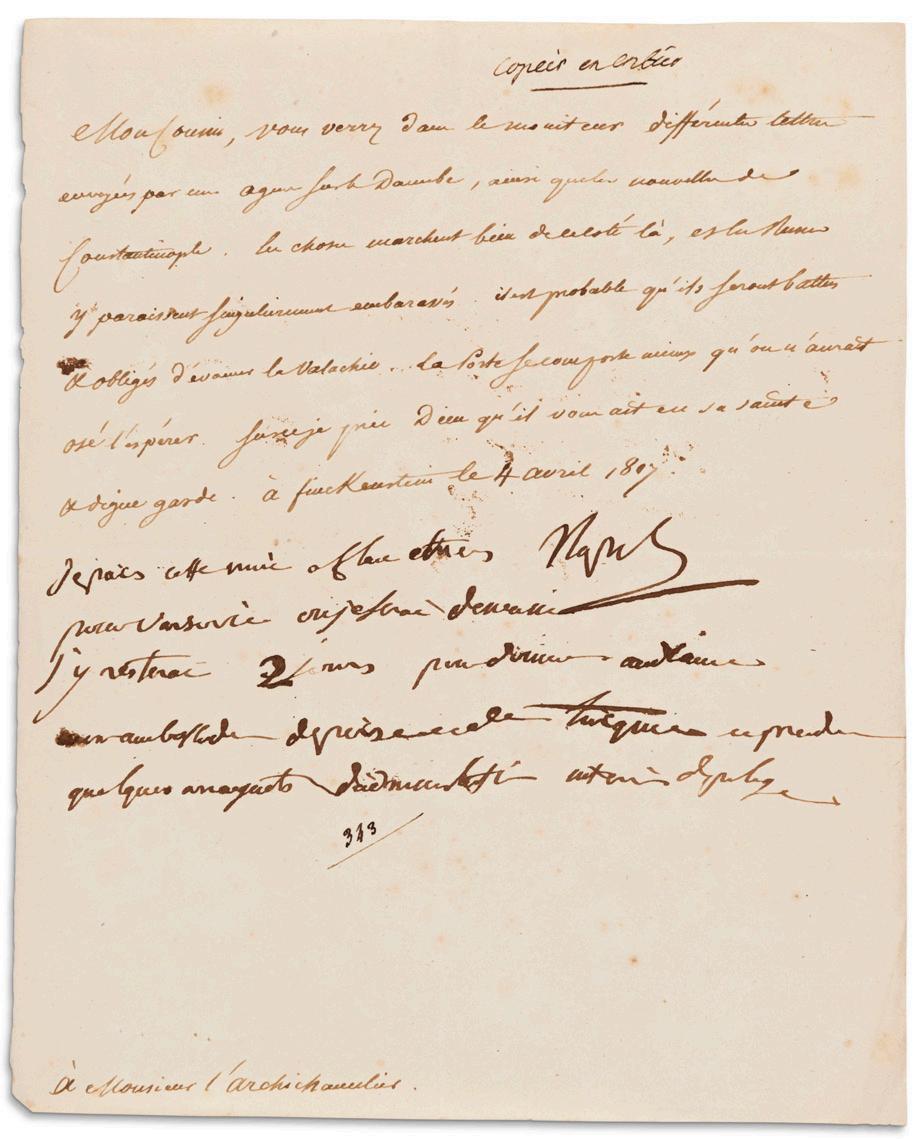 copier en entier
Mon Cousin, vous verrez dans le moniteur différentes lettres
envoyées par un agent sur le Danube, ainsi que les nouvelles de
Constantinople. Les choses marchent bien de ce coté là, et les Russes
y paraissent singulierement embarassés. il est probable qu'ils seront battus
& obligés d'évacuer la Valachie. La Porte se comporte mieux qu'on n'aurait
osé l'espérer. Sur ce je prie Dieu qu'il vous ait en sa sainte
& digne garde. à finckenstein le 4 avril 1807.
Je pars cette nuit Napol
pour varsovie ou je serai demain
j'y resterai 2 jours pour donner audience
un ambassadeur de perse et de turquie et prendre
quelques d'administration
343
à Monsieur l'archichancelier.